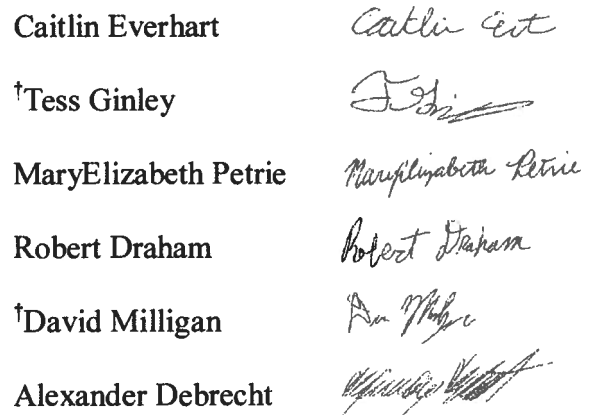 Caitlin Everhart Caitlin
†Tess Ginley
MaryElizabeth Petrie MaryElizabeth Petrie
Robert Draham Robert Draham
†David Milligan
Alexander Debrecht